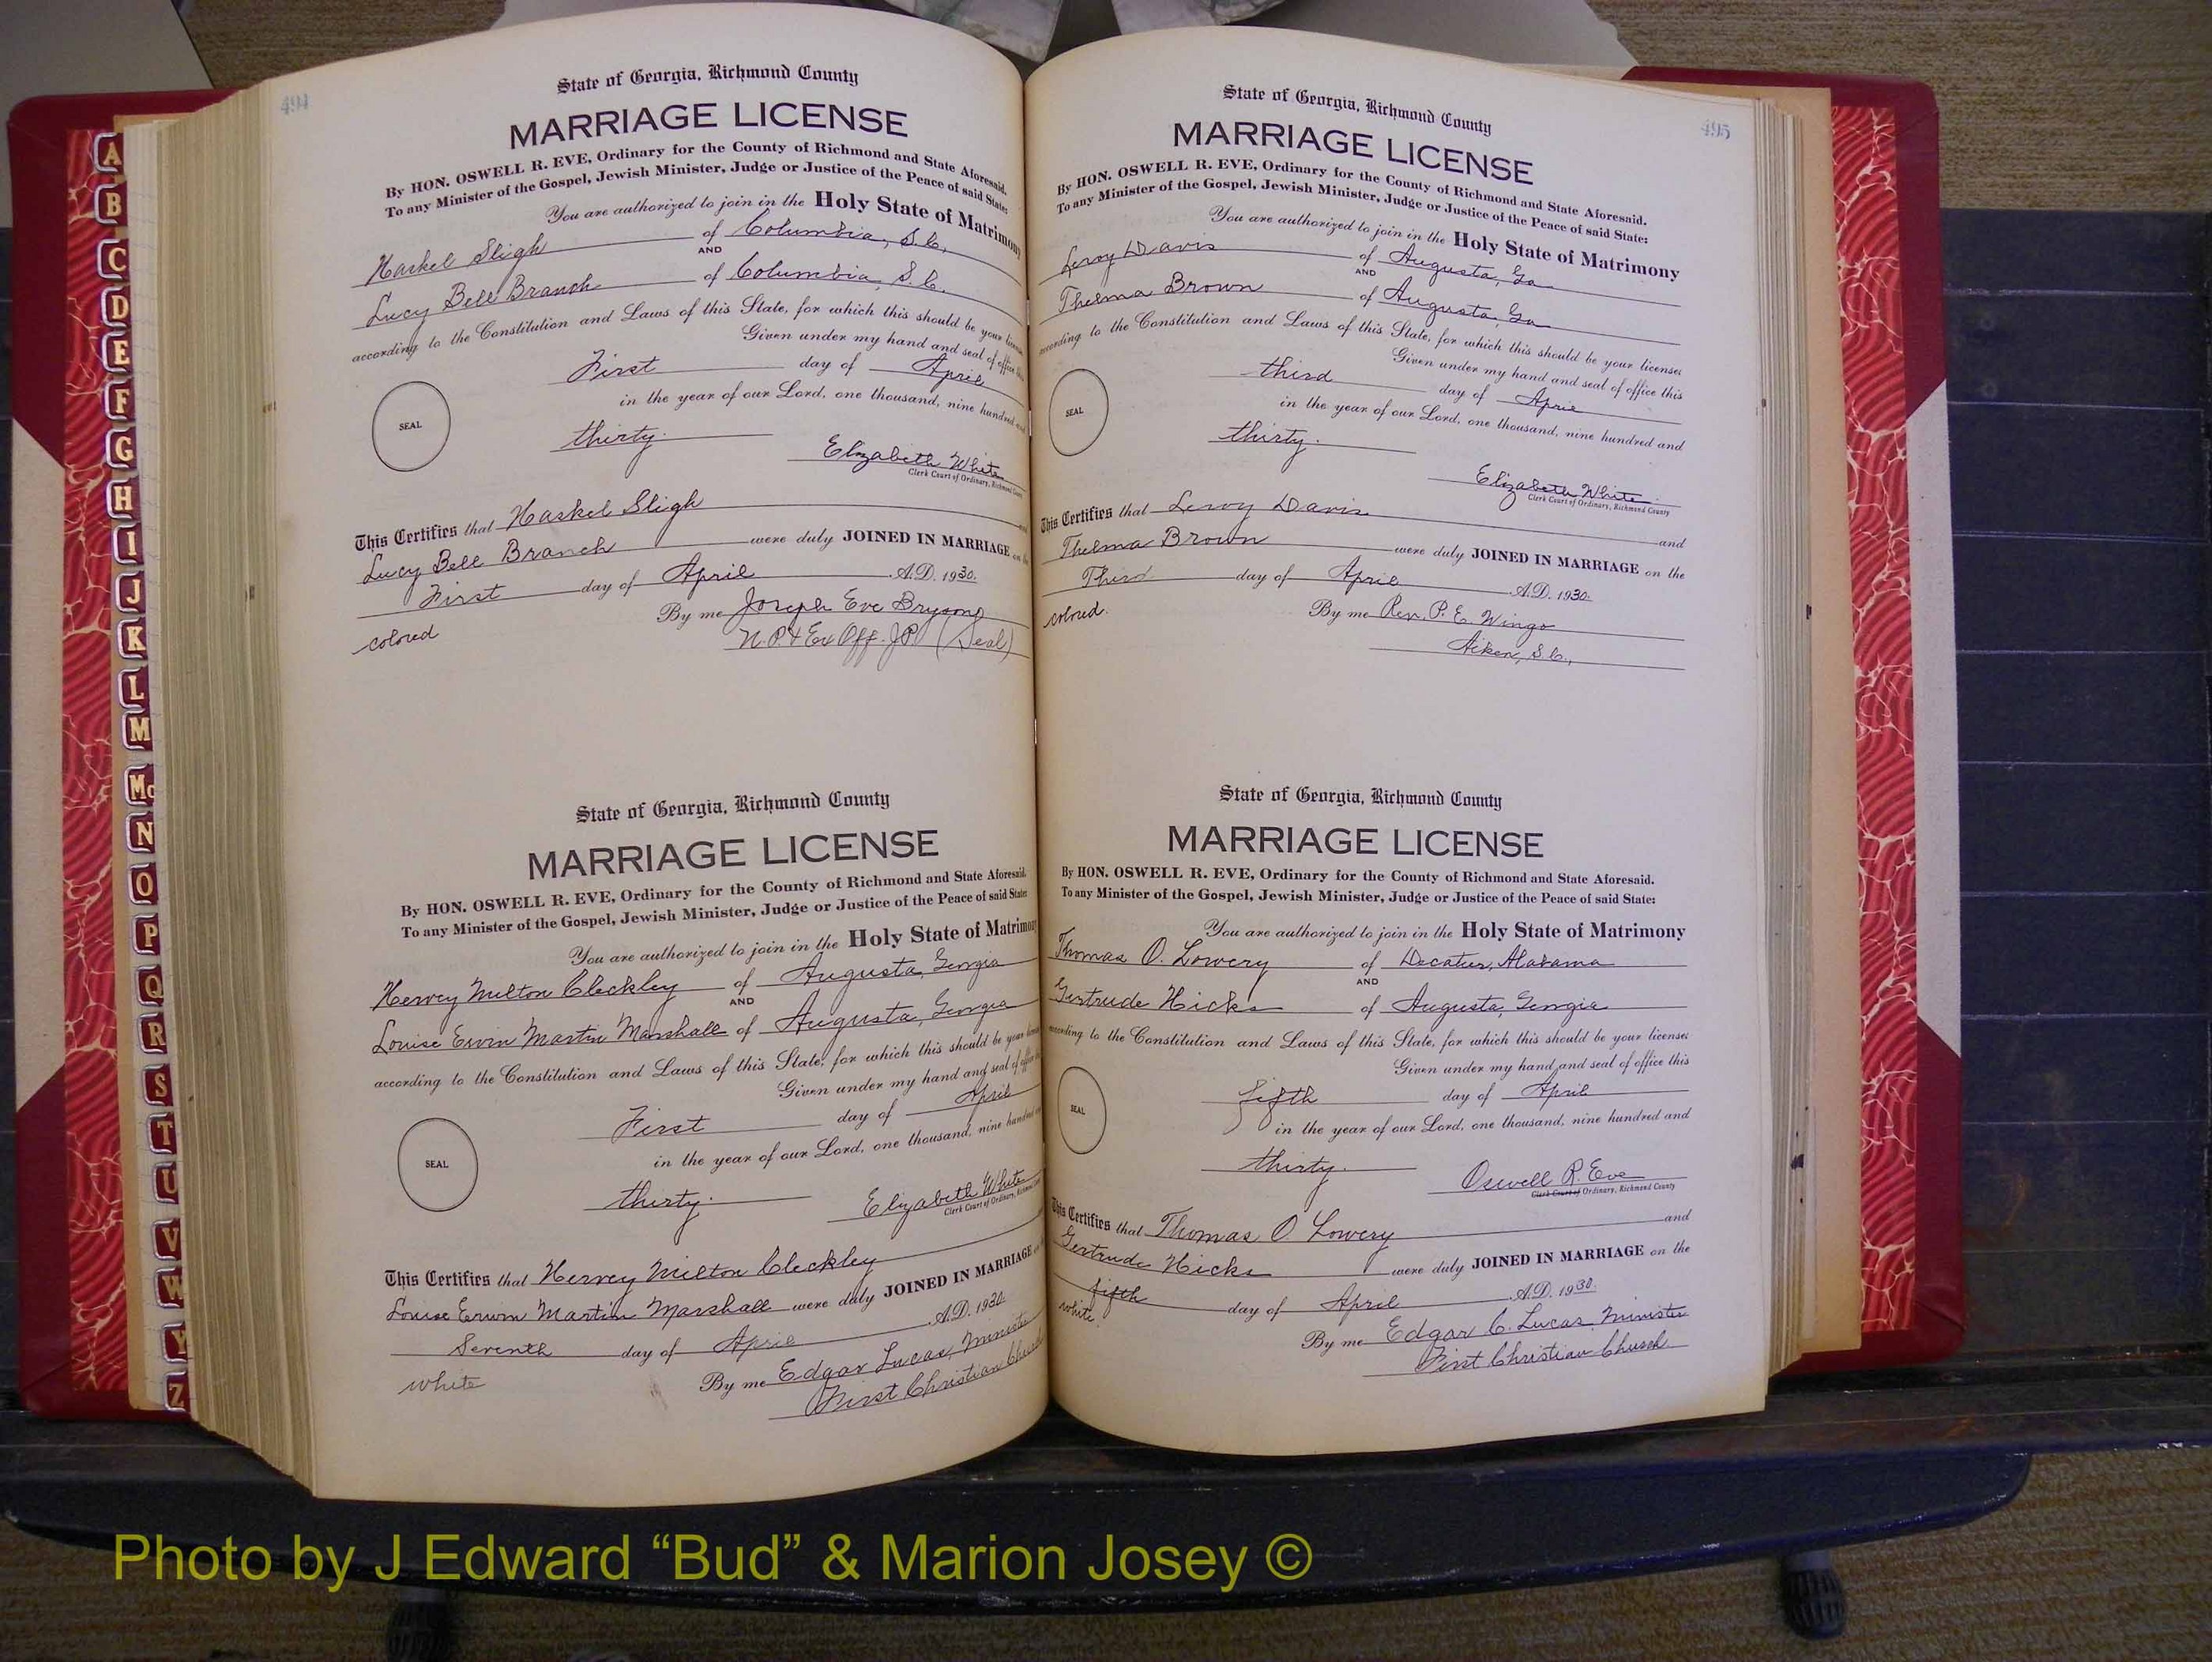 494
State of Georgia, Richmond County
MARRIAGE LICENSE
By HON. OSWELL R. EVE, Ordinary for the County of Richmond and State Aforesaid.
To any Minister of the Gospel, Jewish Minister, Judge or Justice of the Peace of said State:
You are authorized to join in the Holy State of Matrimony
Haskel Sligh of Columbia, S.C.,
AND
Lucy Bell Branch of Columbia, S.C.
according to the Constitution and Laws of this State, for which this should be your license
Given under my hand and seal of office this
First day of April
in the year of our Lord, one thousand, nine hundred and
SEAL
thirty.
Elizabeth White
Clerk Court of Ordinary, Richmond County
This Certifies that Haskel Sligh and
Lucy Bell Branch were duly JOINED IN MARRIAGE on the
First day of April A.D. 1930.
colored
By me Joseph Eve Bryson
N.P. & Ex Off. J.P. (Seal)
State of Georgia, Richmond County
MARRIAGE LICENSE
By HON. OSWELL R. EVE, Ordinary for the County of Richmond and State Aforesaid.
To any Minister of the Gospel, Jewish Minister, Judge or Justice of the Peace of said State:
You are authorized to join in the Holy State of Matrimony
Hervey Milton Cleckley of Augusta, Georgia
AND
Louise Erwin Martin Marshall of Augusta, Georgia
according to the Constitution and Laws of this State, for which this should be your license
Given under my hand and seal of office
First day of April
in the year of our Lord, one thousand, nine hundred and
SEAL
thirty.
Elizabeth White
Clerk Court of Ordinary, Richmond
This Certifies that Hervey Milton Cleckley
Louise Erwin Martin Marshall were duly JOINED IN MARRIAGE on
Seventh day of April A.D. 1930.
white
By me Edgar Lucas, Minister
First Christian Church
495
State of Georgia, Richmond County
MARRIAGE LICENSE
By HON. OSWELL R. EVE, Ordinary for the County of Richmond and State Aforesaid.
To any Minister of the Gospel, Jewish Minister, Judge or Justice of the Peace of said State:
You are authorized to join in the Holy State of Matrimony
Leroy Davis of Augusta, Ga
AND
Thelma Brown of Augusta, Ga
according to the Constitution and Laws of this State, for which this should be your license:
Given under my hand and seal of office this
third day of April
in the year of our Lord, one thousand, nine hundred and
SEAL
thirty.
Elizabeth White
Clerk Court of Ordinary, Richmond County
This Certifies that Leroy Davis and
Thelma Brown were duly JOINED IN MARRIAGE on the
Third day of April A.D. 1930.
colored.
By me Rev. P. E. Wingo
Aiken, S.C.,
State of Georgia, Richmond County
MARRIAGE LICENSE
By HON. OSWELL R. EVE, Ordinary for the County of Richmond and State Aforesaid.
To any Minister of the Gospel, Jewish Minister, Judge or Justice of the Peace of said State:
You are authorized to join in the Holy State of Matrimony
Thomas O. Lowery of Decatur, Alabama
AND
Gertrude Hicks of Augusta, Georgia
according to the Constitution and Laws of this State, for which this should be your license:
Given under my hand and seal of office this
fifth day of April
in the year of our Lord, one thousand, nine hundred and
SEAL
thirty.
Oswell R. Eve
Clerk Court of Ordinary, Richmond County
This Certifies that Thomas O Lowery and
Gertrude Hicks were duly JOINED IN MARRIAGE on the
fifth day of April A.D. 1930.
white.
By me Edgar C. Lucas, Minister
First Christian Church
A
B
C
D
E
F
G
H
I
J
K
L
M
Mc
N
O
P
Q
R
S
T
U
V
W
Y
Z
Photo by J Edward “Bud” & Marion Josey ©